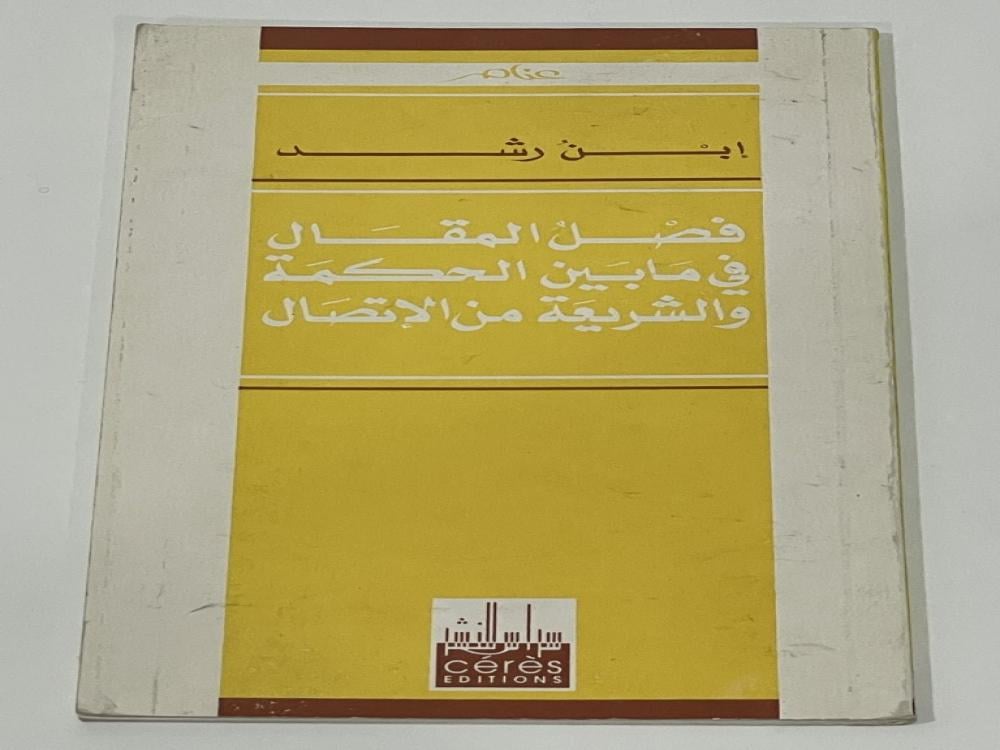 عنام
إبْن رشد
فصْلُ المقَال
في مَا بَين الحكمَة
والشريعَة من الإتصَال
سراس للنشر
cérès
EDITIONS